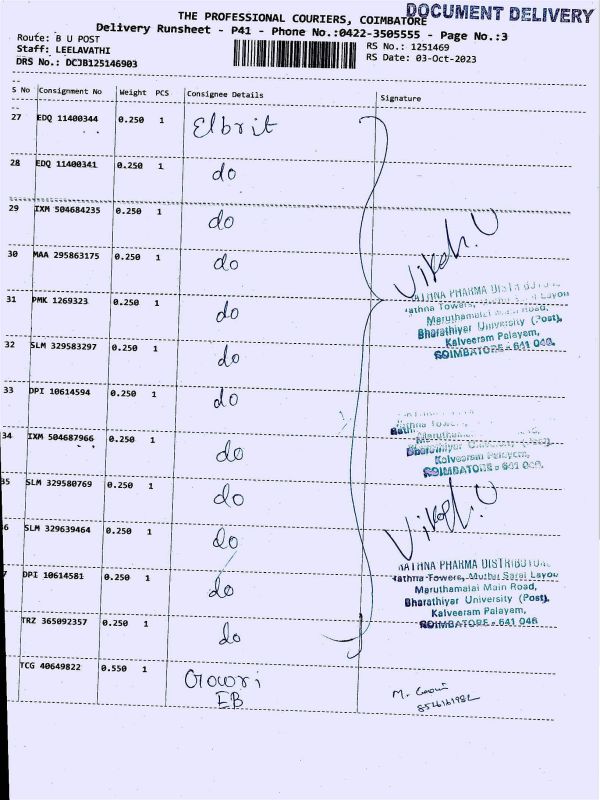 DOCUMENT DELIVERY
THE PROFESSIONAL COURIERS, COIMBATORE
Delivery Runsheet - P41 - Phone No.:0422-3505555 - Page No.:3
Route: B U POST
Staff: LEELAVATHI
DRS No.: DCJB125146903
RS No.: 1251469
RS Date: 03-Oct-2023
S No Consignment No Weight PCS Consignee Details Signature
27 EDQ 11400344 0.250 1 Elbrit
28 EDQ 11400341 0.250 1 do
29 IXM 504684235 0.250 1 do
30 MAA 295863175 0.250 1 do
31 PMK 1269323 0.250 1 do
32 SLM 329583297 0.250 1 do
33 DPI 10614594 0.250 1 do
34 IXM 504687966 0.250 1 do
35 SLM 329580769 0.250 1 do
36 SLM 329639464 0.250 1 do
7 DPI 10614581 0.250 1 do
TRZ 365092357 0.250 1 do
TCG 40649822 0.550 1 Gowri
EB
RATHNA PHARMA DISTRIBUTO
Rathna Towers, Layou
Maruthamalai Main Road,
Bharathiyar University (Post),
Kalveeram Palayam,
COIMBATORE - 641 046.
Rathna Tower
Bharathiyar University (Post),
Kalveeram Palayem,
COIMBATORE - 641 046.
RATHNA PHARMA DISTRIBUTO
Rathna Towers, Muthu Sarai Layou
Maruthamalai Main Road,
Bharathiyar University (Post),
Kalveeram Palayam,
COIMBATORE - 641 046
M. Gowri